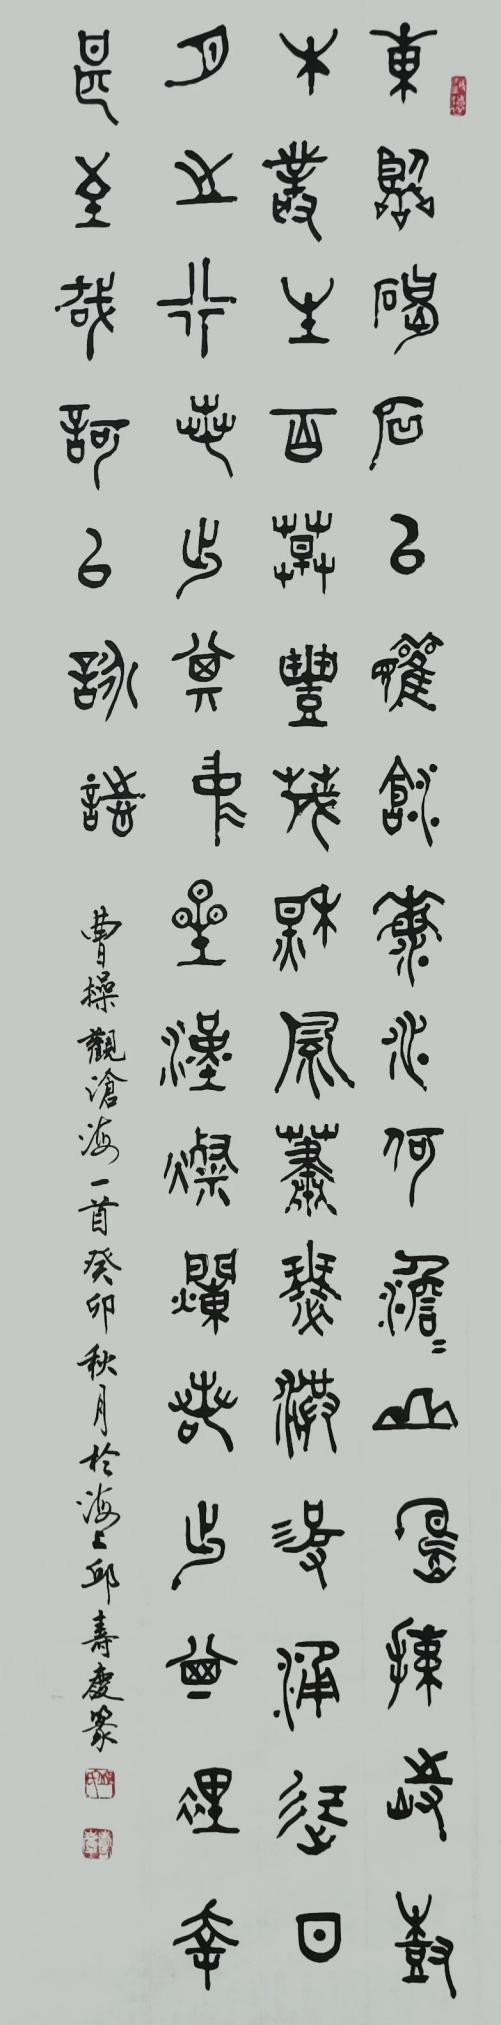 東臨碣石以觀滄海水何澹〻山島竦峙樹
木叢生百草豐茂秋風蕭瑟洪波涌起日
月之行若出其中星漢燦爛若出其裡幸
甚至哉歌以詠志
曹操觀滄海一首癸卯秋月於海上邱壽慶篆